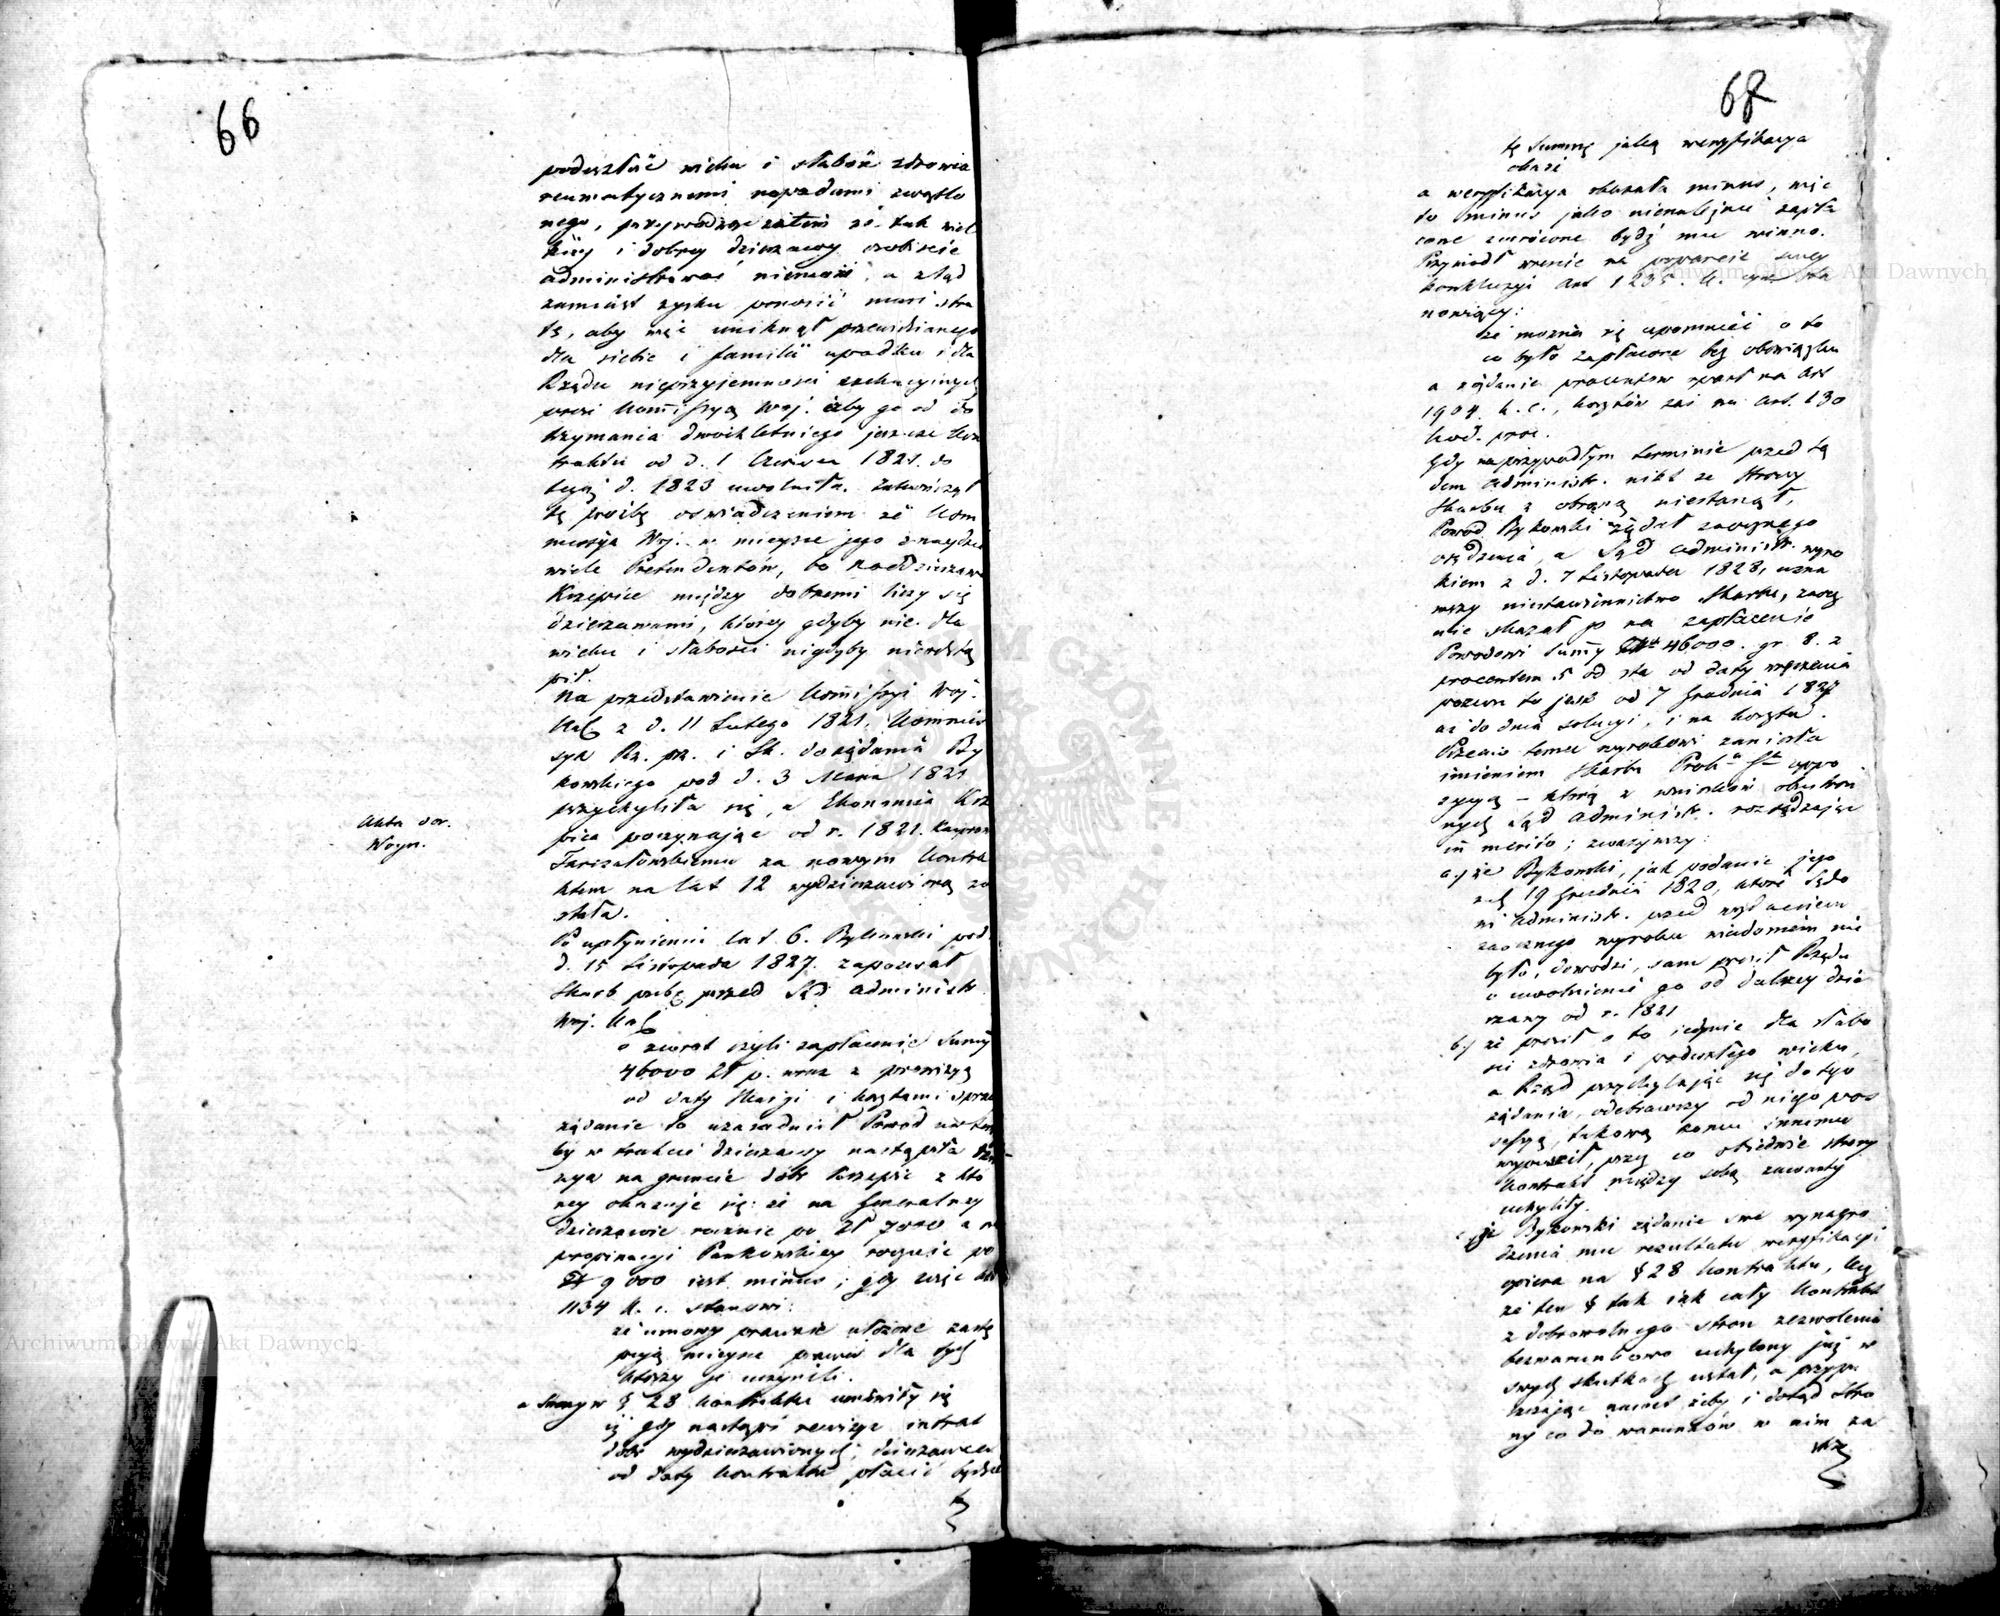 66
podeszłość wieku i słabość zdrowia
reumatycznemi napadami zwątlo
nego, przeprowadza zatem że tak wiel
kiey i dobrey dzierzawy osobiście
administrować niemoże, a ztąd
zamiast zysku ponosić musi stra
tę, aby więc uniknął przewidzianego
dla siebie i familii upadku i dla
Rządu nieprzyjemności exekucyinych
prosi Kommissyą Woj. aby go od do
trzymania dwuchletniego jeszcze Kon
traktu od d. 1 Czerwca 1821. do
tegoż d. 1823 uwolniła. Zakończył
tę prośbę oświadczeniem że Kom
missya Woj. w mieysce jego znaydzie
wiele Pretendentów, bo naddzierzawa
Krzepice między dobremi liczy się
dzierzawami, którey gdyby nie dla
wieku i słabości nigdyby nieodstą
pił.
Na przedstawienie Kommissyi Woj.
Kal. z d. 11 Lutego 1821. Kommis
sya Rz. prz. i Sk. do żądania By
kowskiego pod d. 3 Marca 1821
przychyliła się, a Ekonomia Krze
pice poczynając od r. 1821.
za nowym Kontra
ktem na lat 12 wydzierzawioną zo
stała.
Akta dor.
Woyn.
Po upłynieniu lat 6. Bykowski pod
d. 15 Listopada 1827. zapozwał
Skarb publ. przed Sąd Administr.
Woj. Kal.
o zwrot czyli zapłacenie Summy
46000 Zł p. wraz z prowizyą
od daty Skargi i kosztami sprawy
żądanie to uzasadniał Powód
by w trakcie dzierzawy nastąpiła
zya na gruncie dóbr Krzepic z któ
rey okazuje się: że na Generalney
dzierzawie rocznie po Zł 7000 a na
propinacyi Pankowskiey rocznie po
Zł 9000 jest minus; gdy więc Art.
1134 K. c. stanowi:
że umowy prawnie ułożone zastę
pują mieysce prawa dla tych
którzy je uczynili.
a Strony w § 28 Kontraktu umówiły się
iż gdy nastąpi rewizya intrat
dóbr wydzierzawionych; dzierzawca
od daty Kontraktu płacić będzie
67
tę Summę jaką weryfikacya
okaże
a weryfikacya okazała minus, więc
to minus jako nienależnie zapła
cone zwrócone bydź mu winno.
Przywiódł wrenie na poparcie swey
konkluzyi Art 1235. K. cyw. sta
nowiący:
że można się upomnieć o to
co było zapłacone bez obowiązku
a żądanie procentów oparł na Art
1904. k. c., kosztów zaś na Art. 130
Kod. proc.
Gdy na przypadłym terminie przed Są
dem Administr. nikt ze Strony
Skarbu z obroną niestanął,
Powód Bykowski żądał zaocznego
osądzenia, a Sąd Administr. wyro
kiem z d. 7 Listopada 1828, uzna
wszy niestawiennictwo Skarbu, zaocz
nie skazał go na zapłacenie
Powodowi Summy Zł 46000. gr. 8. z
procentem 5 od sta od daty wręczenia
pozwu to jest od 7 Grudnia 1827
aż do dnia solucyi, i na koszta.
Przeciw temu wyrokowi zaniosła
imieniem Skarbu Prok. oppo
zycyą – którą z wniosków obustron
nych Sąd Administr. rozsądzając
in merito; zważywszy:
a.) że Bykowski, jak podanie jego
z d. 19 Grudnia 1820, które Sądo
wi Administr. przed wydaniem
zaocznego wyroku wiadomem nie
było, dowodzi, sam prosił Rządu
o uwolnienie go od dalszey dzier
zawy od r. 1821
b.) że prosił o to jedynie dla słabo
ści zdrowia i podeszłego wieku,
a Rząd przychylając się do tego
żądania, odebrawszy od niego pos
sessyą, takową komu innemu
wypuścił, przez co obiedwie strony
Kontrakt między sobą zawarty
uchyliły.
c.) że Bykowski żądanie swe wynagro
dzenia mu rezultatu weryfikacyi
opiera na § 28 Kontraktu, lecz
że ten § tak jak cały Kontrakt
z dobrowolnego stron zezwolenia
bezwarunkowo uchylony już w
swych skutkach ustał, a przypu
szczając nawet żeby i dotąd Stro
ny co do warunków w nim za